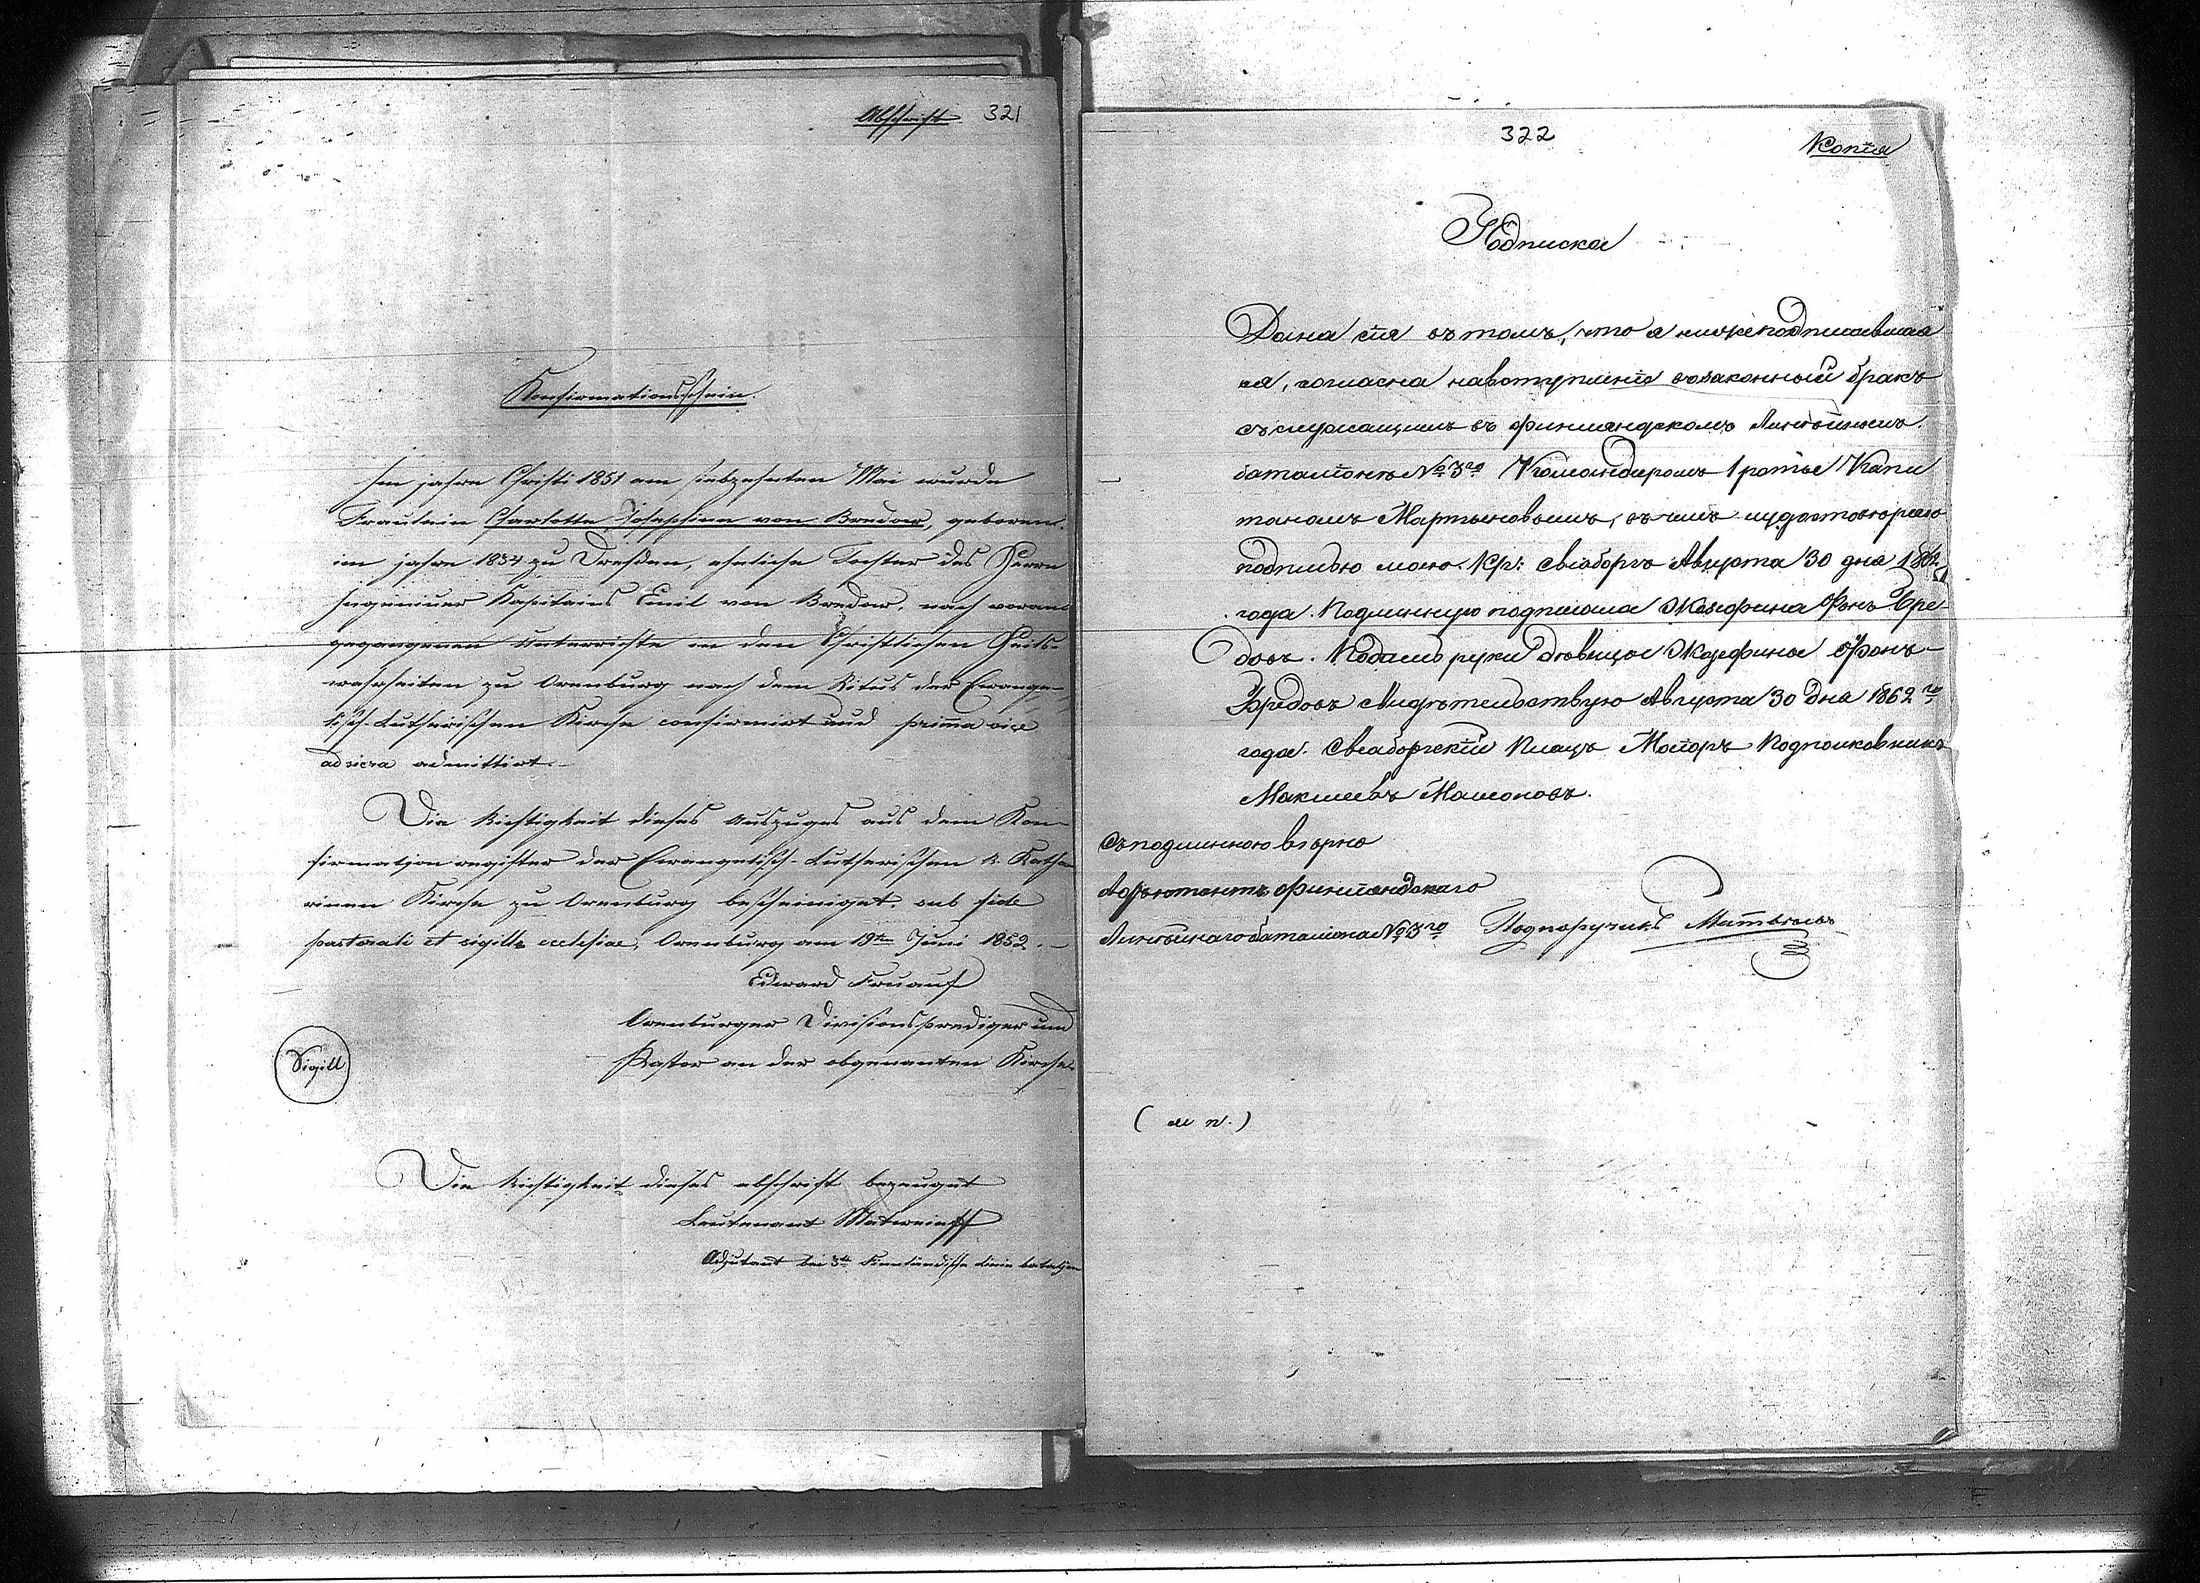 Abschrift. 321
Konfirmationsschein.
Im jahre Christi 1851 am siebzehnten Mai wurde
Fraulein Charlotte Josephine von Bredow, geboren
im jahre 1834 zu Dresden, eheliche Tochter des Herrn
Ingenieur Kapitains Emil von Bredow, nach voran
gegangenen Unterrichte in den Christlichen Heils-
wahrheiten zu Orenburg nach dem Ritus der Evange-
lisch-Lutherischen Kirche confirmirt und prima vice
ad sacra admittirt.
Die Richtigkeit dieses Auszuges aus dem Kon-
firmation register der Evangelisch-Lutherischen St. Katha
rinen Kirche zu Orenburg bescheiniget, sub fide
pastorali et sigillo ecclesiae, Orenburg am 19ten Juni 1852.
Edward Fruauf
Orenburger Divisionsprediger und
Pastor an der obgenanten Kirche.
Sigill
Die Richtigkeit dieses abschrift bezeuget
Leutenant Matweieff
Adjutant bei 3ten Finnländische Linie bataljon
322
Копія
Подписка
Дана сія въ томъ, что я нижеподписавшая
ся, согласна на вступленіе въ законный бракъ
съ служащимъ въ Финляндскомъ Линѣйномъ
баталіонѣ №3го Командиромъ 1 роты Капи
таномъ Мартыновымъ, въ чемъ и удостовѣряю
подписью моею. Кр: Свеаборгъ Августа 30 дня 1862
года. Подлинную подписала Жозефина Фонъ Бре-
довъ. Подпись руки дѣвицы Жозефины Фонъ-
Бредовъ свидѣтельствую Августа 30 дня 1862го
года. Свеаборгскій Плацъ Маіоръ Подполковникъ
Съ подлинною вѣрно
Адъютантъ Финляндскаго
Линѣйнаго баталіона №3го Подпоручикъ Матвѣевъ
( м п. )